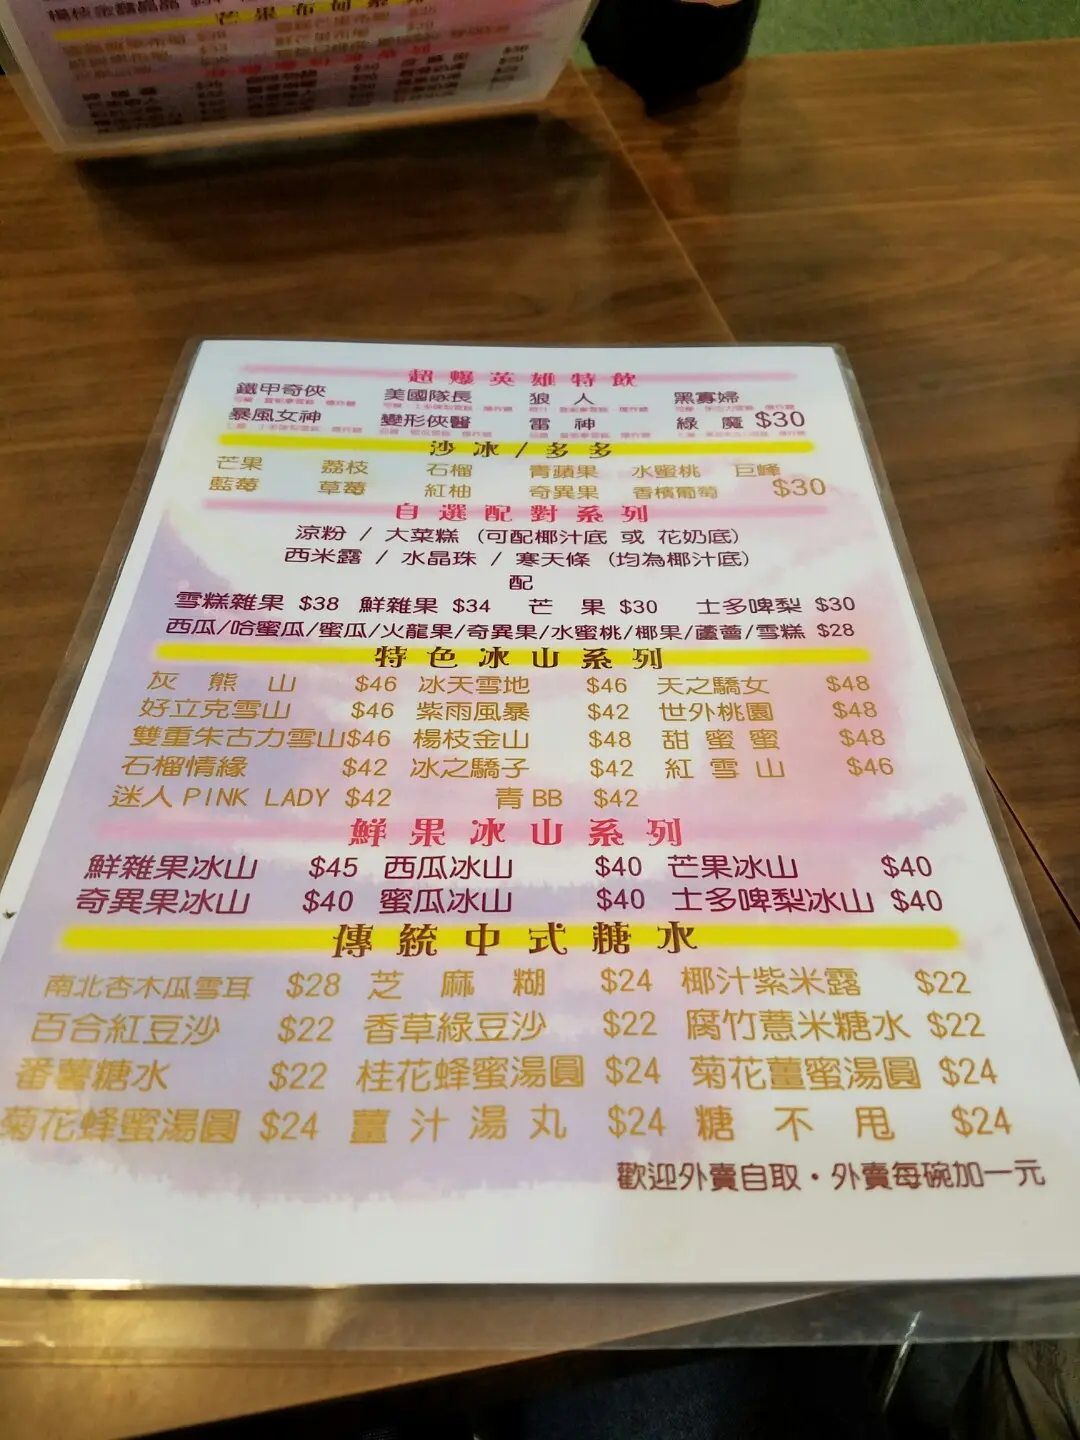 芒果布甸系列
超爆英雄特飲
鐵甲奇俠 美國隊長 狼人 黑寡婦
暴風女神 變形俠醫 雷神 綠魔 $30
沙冰/多多
芒果 荔枝 石榴 青蘋果 水蜜桃 巨峰
藍莓 草莓 紅柚 奇異果 香檳葡萄 $30
自選配對系列
涼粉 / 大菜糕 (可配椰汁底 或 花奶底)
西米露 / 水晶珠 / 寒天條 (均為椰汁底)
配
雪糕雜果 $38 鮮雜果 $34 芒果 $30 士多啤梨 $30
西瓜/哈蜜瓜/蜜瓜/火龍果/奇異果/水蜜桃/椰果/蘆薈/雪糕 $28
特色冰山系列
灰熊山 $46 冰天雪地 $46 天之驕女 $48
好立克雪山 $46 紫雨風暴 $42 世外桃園 $48
雙重朱古力雪山 $46 楊枝金山 $48 甜蜜蜜 $48
石榴情緣 $42 冰之驕子 $42 紅雪山 $46
迷人PINK LADY $42 青BB $42
鮮果冰山系列
鮮雜果冰山 $45 西瓜冰山 $40 芒果冰山 $40
奇異果冰山 $40 蜜瓜冰山 $40 士多啤梨冰山 $40
傳統中式糖水
南北杏木瓜雪耳 $28 芝麻糊 $24 椰汁紫米露 $22
百合紅豆沙 $22 香草綠豆沙 $22 腐竹薏米糖水 $22
番薯糖水 $22 桂花蜂蜜湯圓 $24 菊花薑蜜湯圓 $24
菊花蜂蜜湯圓 $24 薑汁湯丸 $24 糖不甩 $24
歡迎外賣自取・外賣每碗加一元